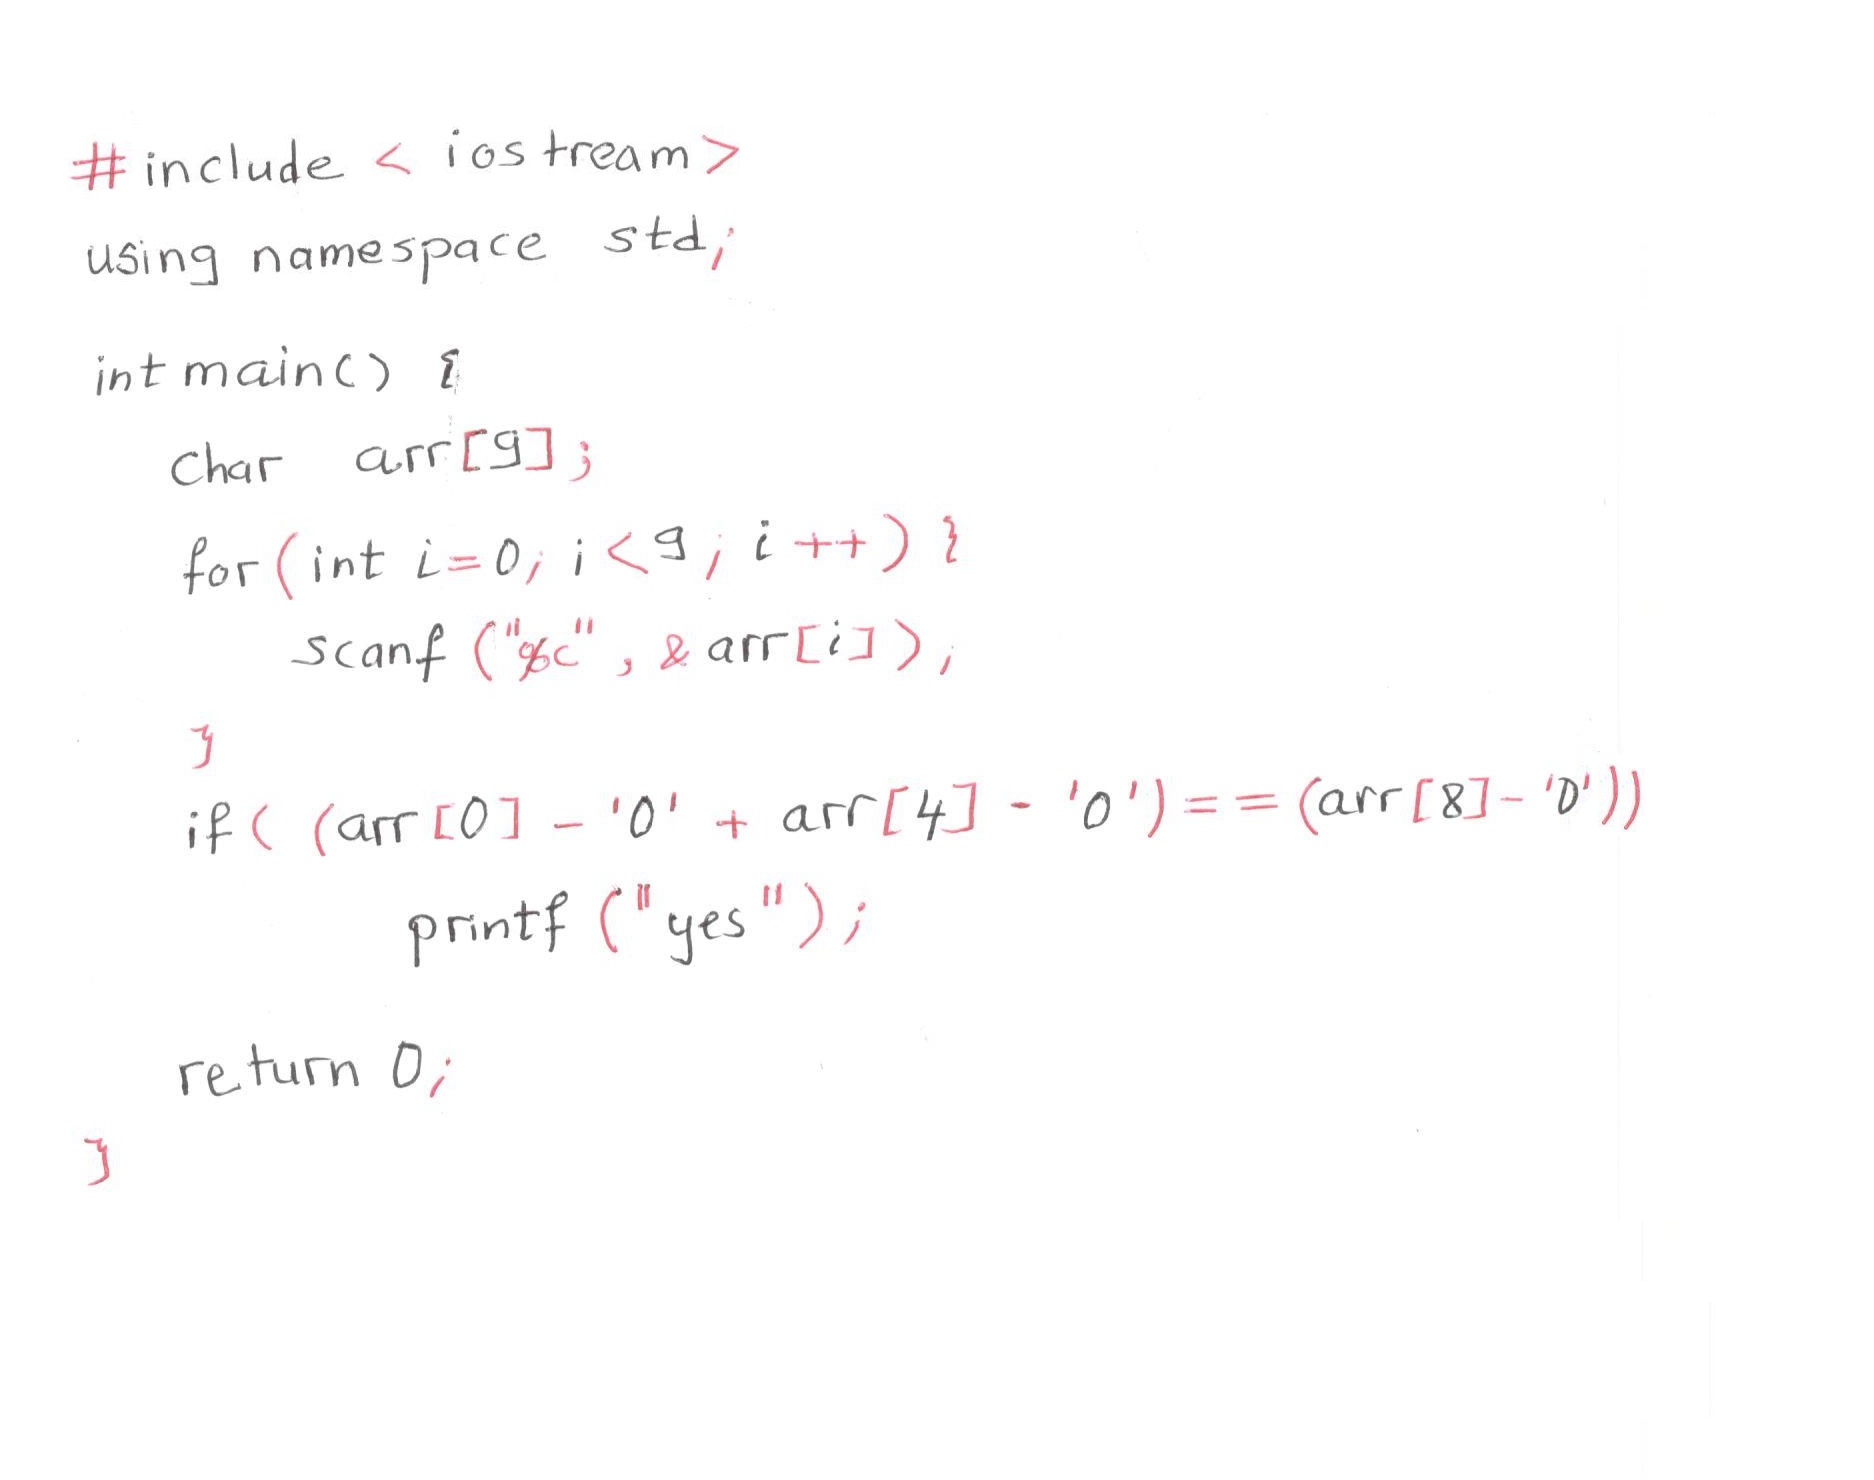 #include < iostream>
using namespace std;
int main() {
char arr[9];
for(int i=0; i<9; i++) {
scanf ("%c", & arr[i]);
}
if( (arr[0] - '0' + arr[4] - '0') == (arr[8]- '0'))
printf ("yes");
return 0;
}